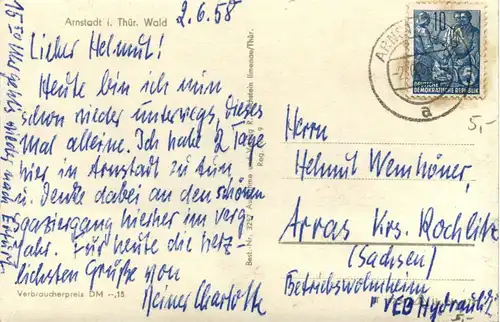 Arnstadt i. Thür. Wald
2.6.58
Lieber Helmut!
Heute bin ich nun
schon wieder unterwegs, dieses
Mal alleine. Ich habe 2 Tage
hier in Arnstadt zu tun
u. denke dabei an den schönen
Spaziergang hierher im vorig.
Jahr. Für heute die herz-
lichsten Grüße von
Deiner Charlotte
Verbraucherpreis DM --,15
wieder nach Erfurt
Best. Nr. 3212
Ilmenau/Thür.
ARNS
a
10
DEUTSCHE
DEMOKRATISCHE REPUBLIK
5,-
Herrn
Helmut Wemhöner,
Arras Krs. Rochlitz
(Sachsen)
Betriebswohnheim
VEB Hydraulik
5,-